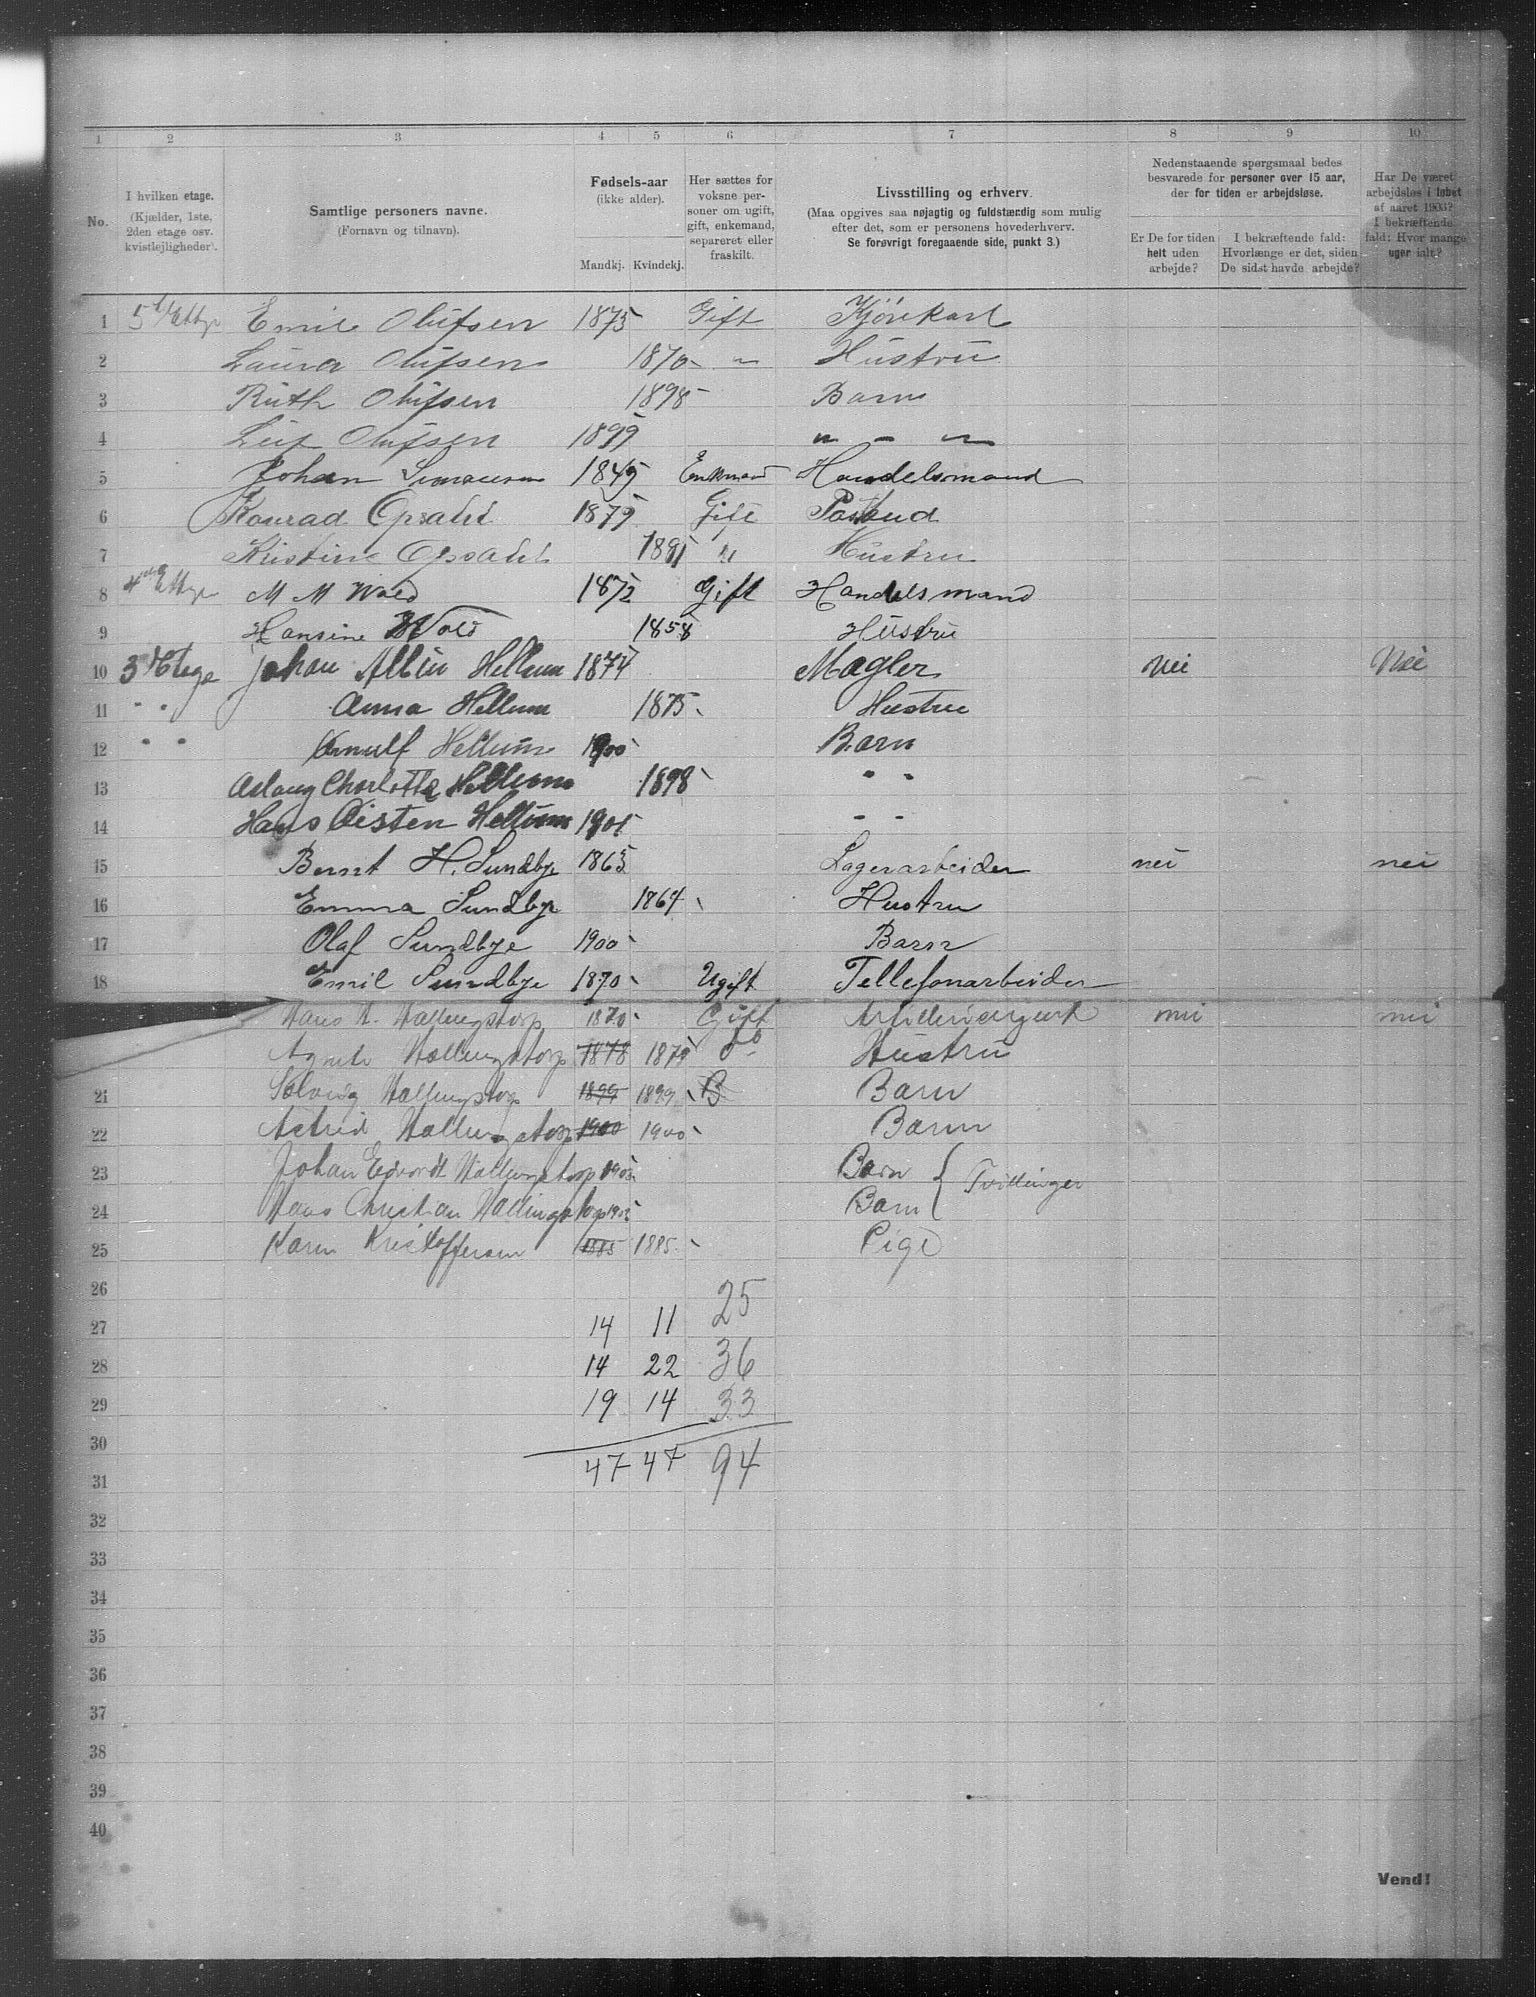 1 2 3 4 5 6 7 8 9 10
No.
I hvilken etage.
(Kjælder, 1ste,
2den etage osv.
kvistlejligheder).
Samtlige personers navne.
(Fornavn og tilnavn).
Fødsels-aar
(ikke alder).
Mandkj. Kvindekj.
Her sættes for
voksne per-
soner om ugift,
gift, enkemand,
separeret eller
fraskilt.
Livsstilling og erhverv.
(Maa opgives saa nøjagtig og fuldstændig som mulig
efter det, som er personens hovederhverv.
Se forøvrigt foregaaende side, punkt 3.)
Nedenstaaende spørgsmaal bedes
besvarede for personer over 15 aar,
der for tiden er arbejdsløse.
Er De for tiden
helt uden
arbejde?
I bekræftende fald:
Hvorlænge er det, siden
De sidst havde arbejde?
Har De været
arbejdsløs i løbet
af aaret 1903?
I bekræftende
fald: Hvor mange
uger ialt?
1 Emil Olufsen 1875 Gift Kjørekarl
2 Laura Olufsen 1870 " Hustru
3 Ruth Olufsen 1898 Barn
4 Leif Olufsen 1899 " - "
5 Johan 1849 Enkmand Handelsmand
6 Konrad Opsahl 1879 Gift Postbud
7 Kristine Opsahl 1881 " Hustru
8 4de Etage M M Wold 1872 Gift Handelsmand
9 Hansine Wold 1858 Hustru
10 3d Etage Johan Albin Hellum 1874 Mægler Nei Nei
11 " " Anna Hellum 1875 Hustru
12 " " Arnulf Hellum 1900 Barn
13 Aslaug Charlotte Hellum 1898 " "
14 Hans Øisten Hellum 1901 " "
15 Bernt H. Sundbye 1865 Lagerarbeider nei nei
16 Emma Sundbye 1864 Hustru
17 Olaf Sundbye 1900 Barn
18 Emil Sundbye 1870 Ugift Tellefonarbeider
Hans H. Hallingstorp 1870 Gift nei nei
Agnete Hallingstorp 1878 1878 Do Hustru
21 Solveig Hallingstorp 1899 1899 B Barn
22 Astrid Hallingstorp 1900 1900 Barn
23 Johan Edvardt Hallingstorp 1903 Barn { Tvillinger
24 Hans Christian Hallingstorp 1903 Barn
25 Karen Kristoffersen 1885 1885 Pige
26 25
27 14 11
28 14 22 36
29 19 14 33
30
31 47 47 94
32
33
34
35
36
37
38
39
40
Vend!